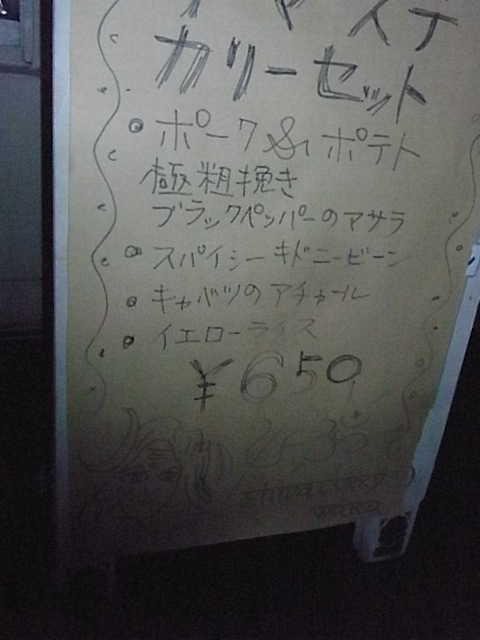 カリーセット
ポーク&ポテト
極粗挽き
ブラックペッパーのアサラ
スパイシーキドニービーン
キャベツのアチャール
イエローライス
¥650
SHIVA CURRY